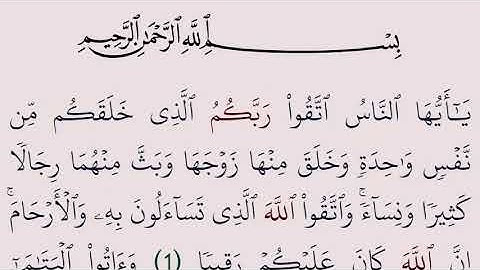 بِسْمِ ٱللَّهِ ٱلرَّحْمَٰنِ ٱلرَّحِيمِ
يَـٰٓأَيُّهَا ٱلنَّاسُ ٱتَّقُوا۟ رَبَّكُمُ ٱلَّذِى خَلَقَكُم مِّن
نَّفْسٍ وَٰحِدَةٍ وَخَلَقَ مِنْهَا زَوْجَهَا وَبَثَّ مِنْهُمَا رِجَالًا
كَثِيرًا وَنِسَآءً ۚ وَٱتَّقُوا۟ ٱللَّهَ ٱلَّذِى تَسَآءَلُونَ بِهِۦ وَٱلْأَرْحَامَ ۚ
إِنَّ ٱللَّهَ كَانَ عَلَيْكُمْ رَقِيبًا (1) وَءَاتُوا۟ ٱلْيَتَـٰمَىٰٓ